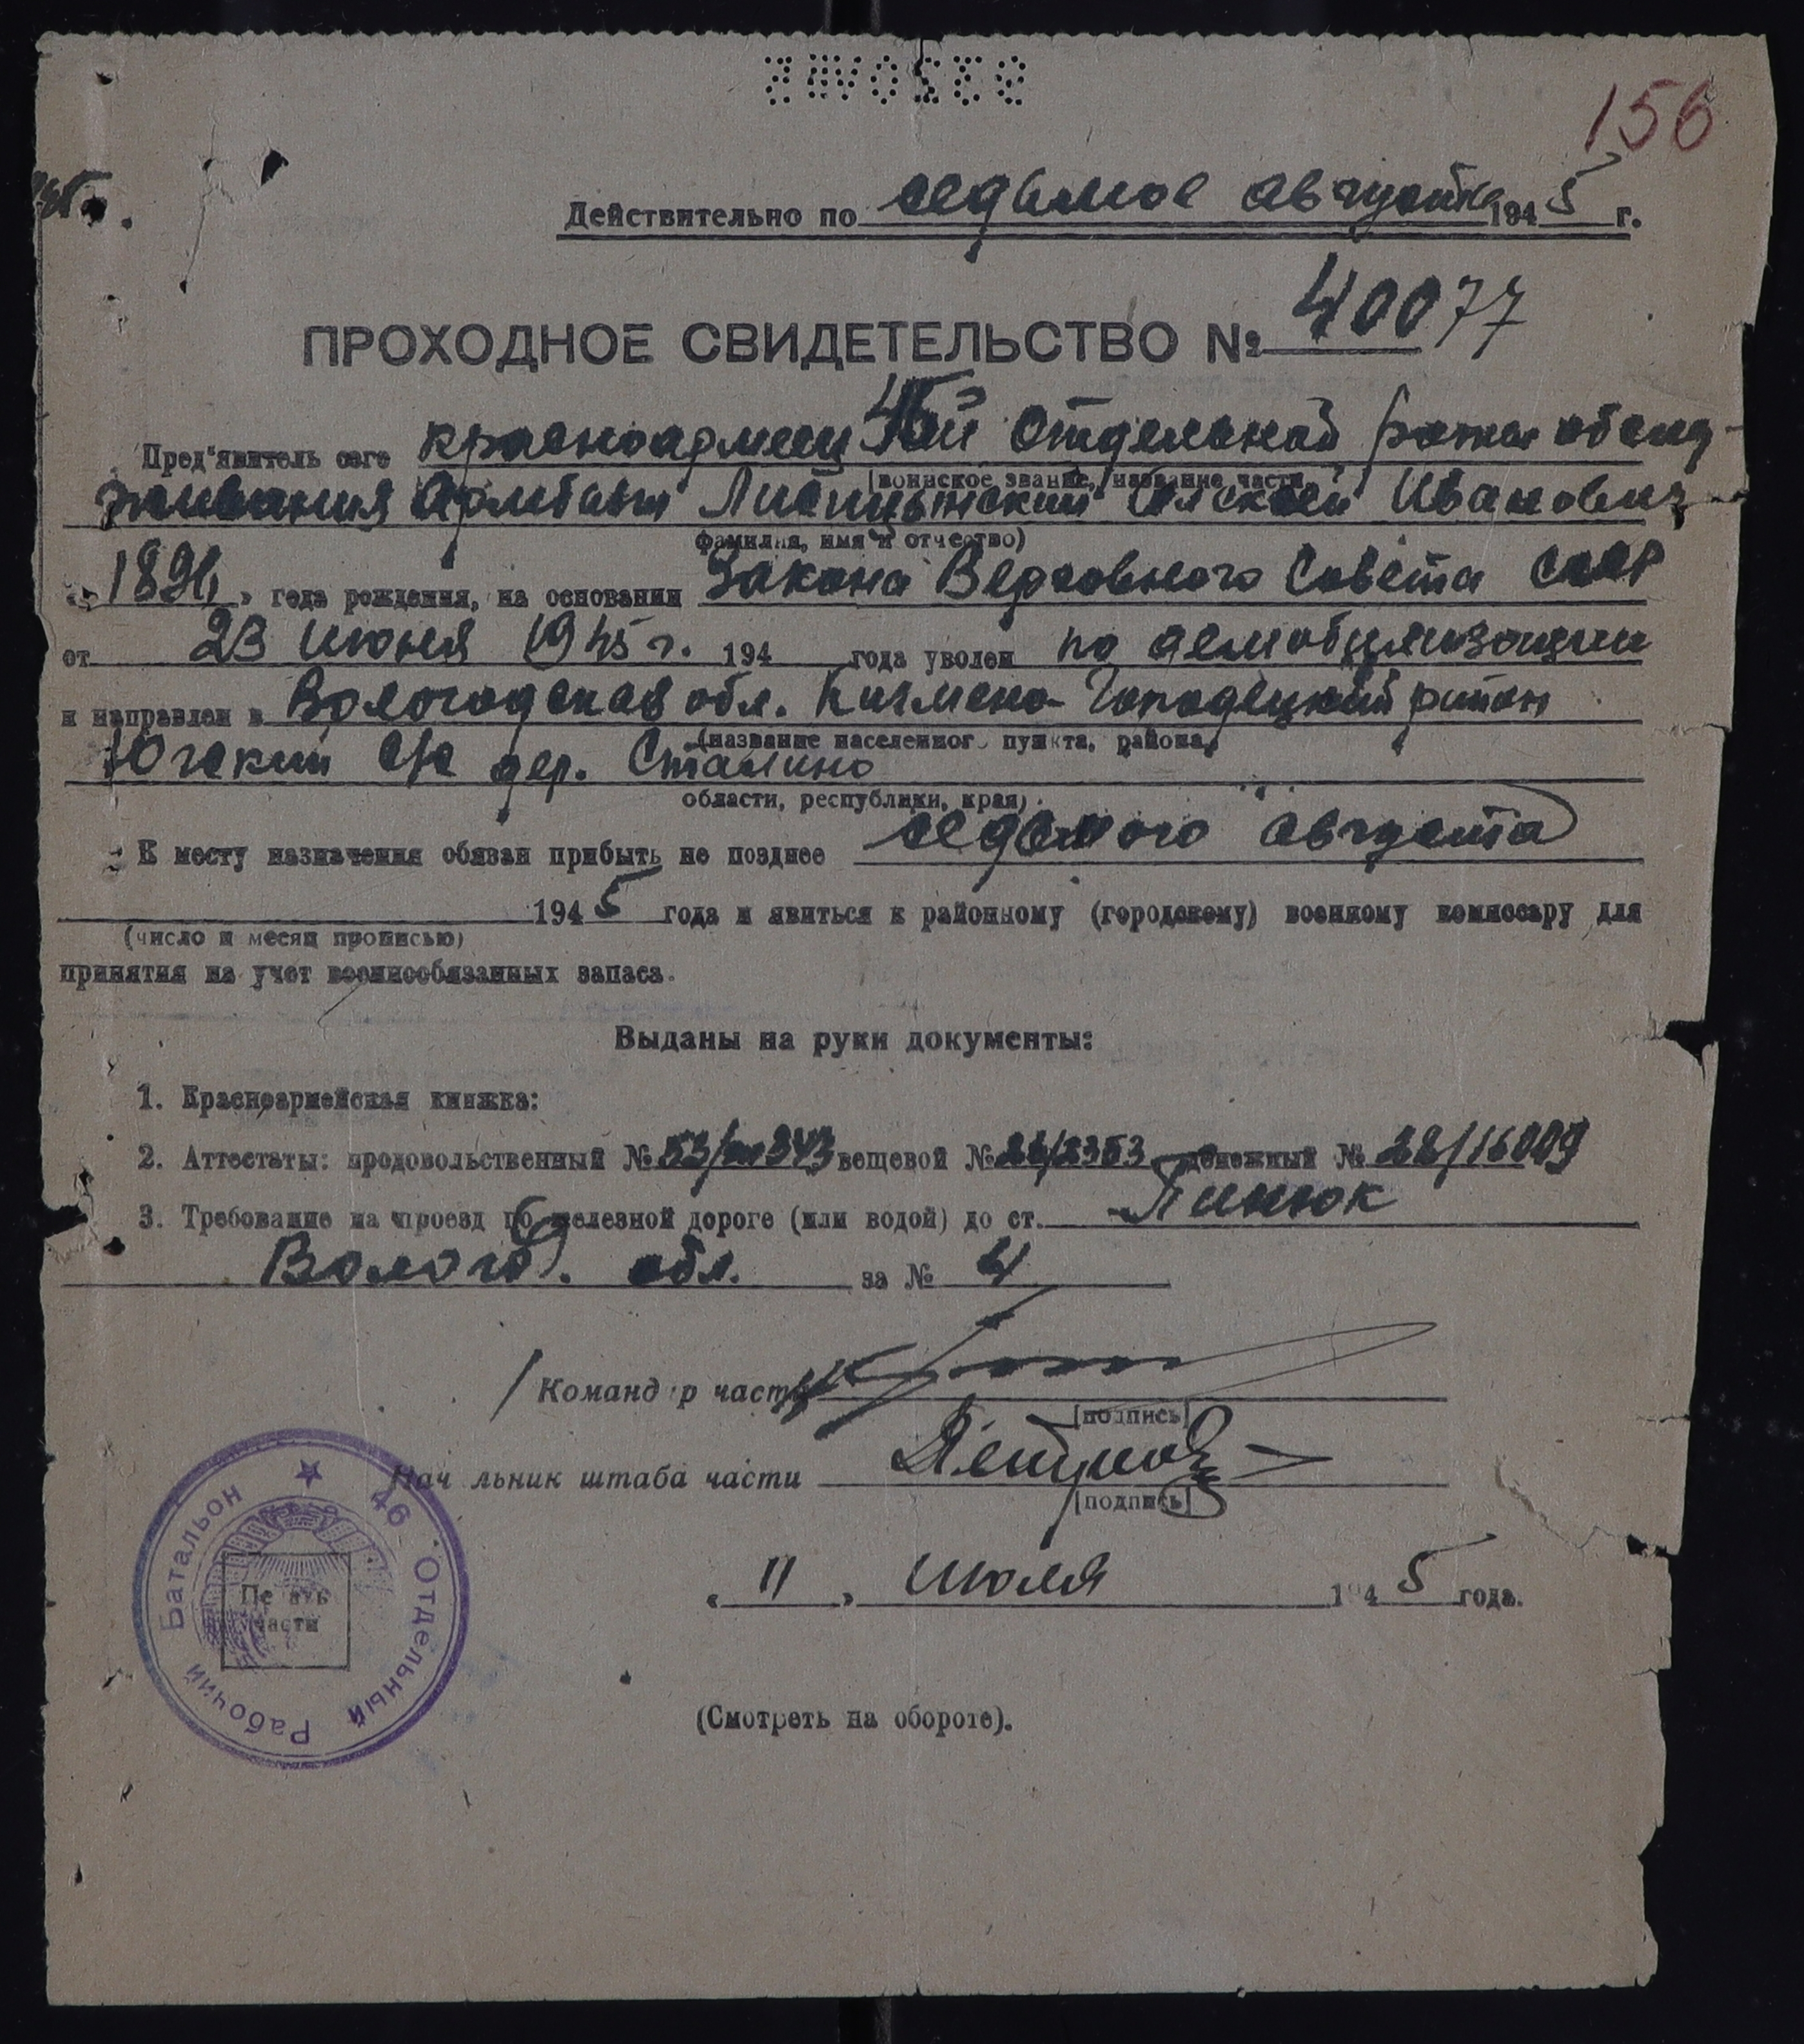 156
Действительно по седьмое августа 1945 г.
ПРОХОДНОЕ СВИДЕТЕЛЬСТВО № 40077
Пред'явитель сего красноармеец 45ой Отдельной роты обслу-
(воинское звание, название части,
живания Армбата Иванович
фамилия, имя и отчество)
года рождения, на основании Закона Верховного Совета СССР
от 23 июня 1945 г. 194 года уволен по демобилизации
и направлен в Вологодская обл. Кичмено-Городецкий район
(название населенного пункта, района,
Югский с/с дер. Сталино
области, республики, края)
К месту назначения обязан прибыть не позднее седьмого августа
1945 года и явиться к районному (городскому) военному комиссару для
(число и месяц прописью)
принятия на учет военнообязанных запаса.
Выданы на руки документы:
1. Красноармейская книжка:
2. Аттестаты: продовольственный № вещевой № денежный № 22/16009
3. Требование на проезд по железной дороге (или водой) до ст. Пинюк
Волог. обл. за № 4
Командир части
[подпись]
Начальник штаба части
[подпись]
46 Отдельный Рабочий Батальон
Печать
части
« 11 » июля 1945 года.
(Смотреть на обороте).